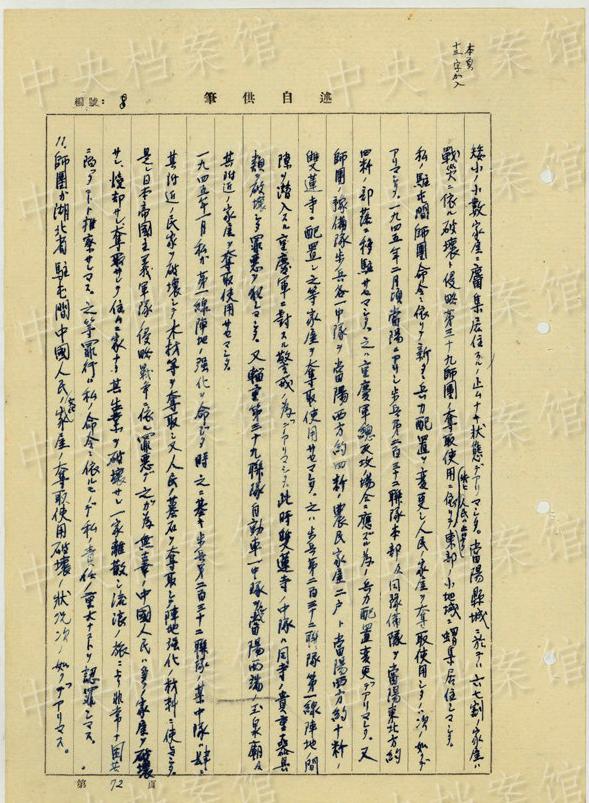 本頁
十三字加入
述自供筆
編號：8
矮小ノ小数家屋ニ麕集居住スルノ止ムナキ状態デアリマシタ。當陽縣城ニ於テハ六七割ノ家屋ハ
戰災ニ依ル破壊ト侵略第三十九師團ノ奪取使用ニ依リテ人民ハ東部ノ小地域ニ蝟集居住シマシタ。
私ノ駐屯間師團命令ニ依リテ新タニ兵力配置ヲ変更シ人民ノ家屋ヲ奪取使用シタノハ次ノ如クデ
アリマシタ。一九四五年二月頃當陽ニアリシ歩兵第二百三十二聯隊本部及同豫備隊ヲ當陽東北方約
四粁ノ部落ニ移駐サセマシタ。之ハ重慶軍總反攻場合ニ應ズル為ノ兵力配置変更デアリマシタ。又
師團ノ豫備隊歩兵各一中隊ヲ當陽西方約四粁ノ農民家屋二戸ト當陽西方約十粁ノ
雙蓮寺ニ配置シ之等家屋ヲ奪取使用サセマシタ。之ハ歩兵第二百三十二聯隊第一線陣地ノ間
隙ヲ潜入スル重慶軍ニ対スル警戒ノ為デアリマシタ。此時雙蓮寺ノ中隊ハ同寺ノ貴重ナ器具
類ヲ破壊シタ罪悪ヲ犯シマシタ。又輜重第三十九聯隊自動車一中隊ヲ當陽西端ノ玉泉廟及
其附近ノ家屋ヲ奪取使用サセマシタ。
一九四五年一月私ガ第一線陣地ノ強化ヲ命ジタ時之ニ基キ歩兵第二百三十二聯隊ノ某中隊ハ
其附近ノ民家ヲ破壊シテ木材等ヲ奪取シ又人民ノ墓石ヲ奪取シ陣地強化ノ材料ニ使ヒマシタ。
是レ日本帝國主義軍隊ノ侵略戰争ニ依ル罪悪デ之ガ為無辜ノ中國人民ハ多ク家屋ヲ破壊
サレ、燒却サレ、奪取サレテ住ムニ家ナク其生業ヲ破壊サレ一家離散シ流浪ノ旅ニ非常ナ困苦
ニ陥ツタコトト推察サレマス。之等罪行ハ私ノ命令ニ依ルモノデ私ノ責任ノ重大ナコトヲ認罪シマス。
11、師團ガ湖北省駐屯間中國人民ノ家屋ノ奪取使用破壊ノ状況次ノ如クデアリマス。
第72頁
中央档案馆